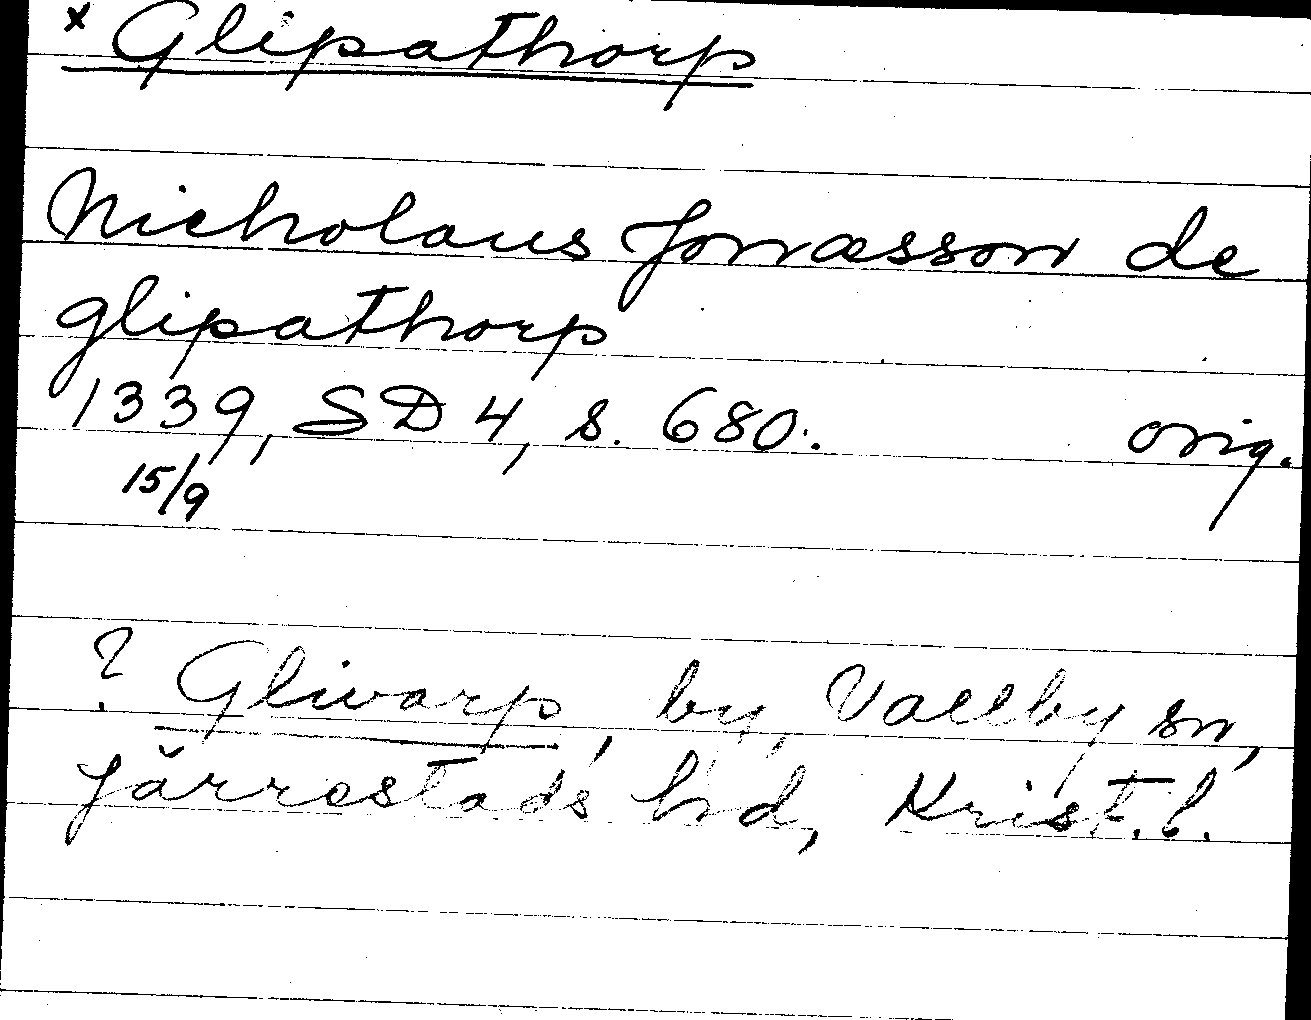 x Glipathorp
Nicholaus Jonæsson de
glipathorp
1339, SD 4, s. 680. orig.
15/9
? Glivarp, by, Vallby sn,
Järrestads hd, Krist. l.